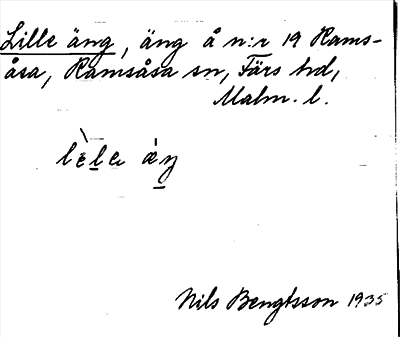 Lille äng, äng å n:r 19 Rams-
åsa, Ramsåsa sn, Färs hd,
Malm. l.
Nils Bengtsson 1935